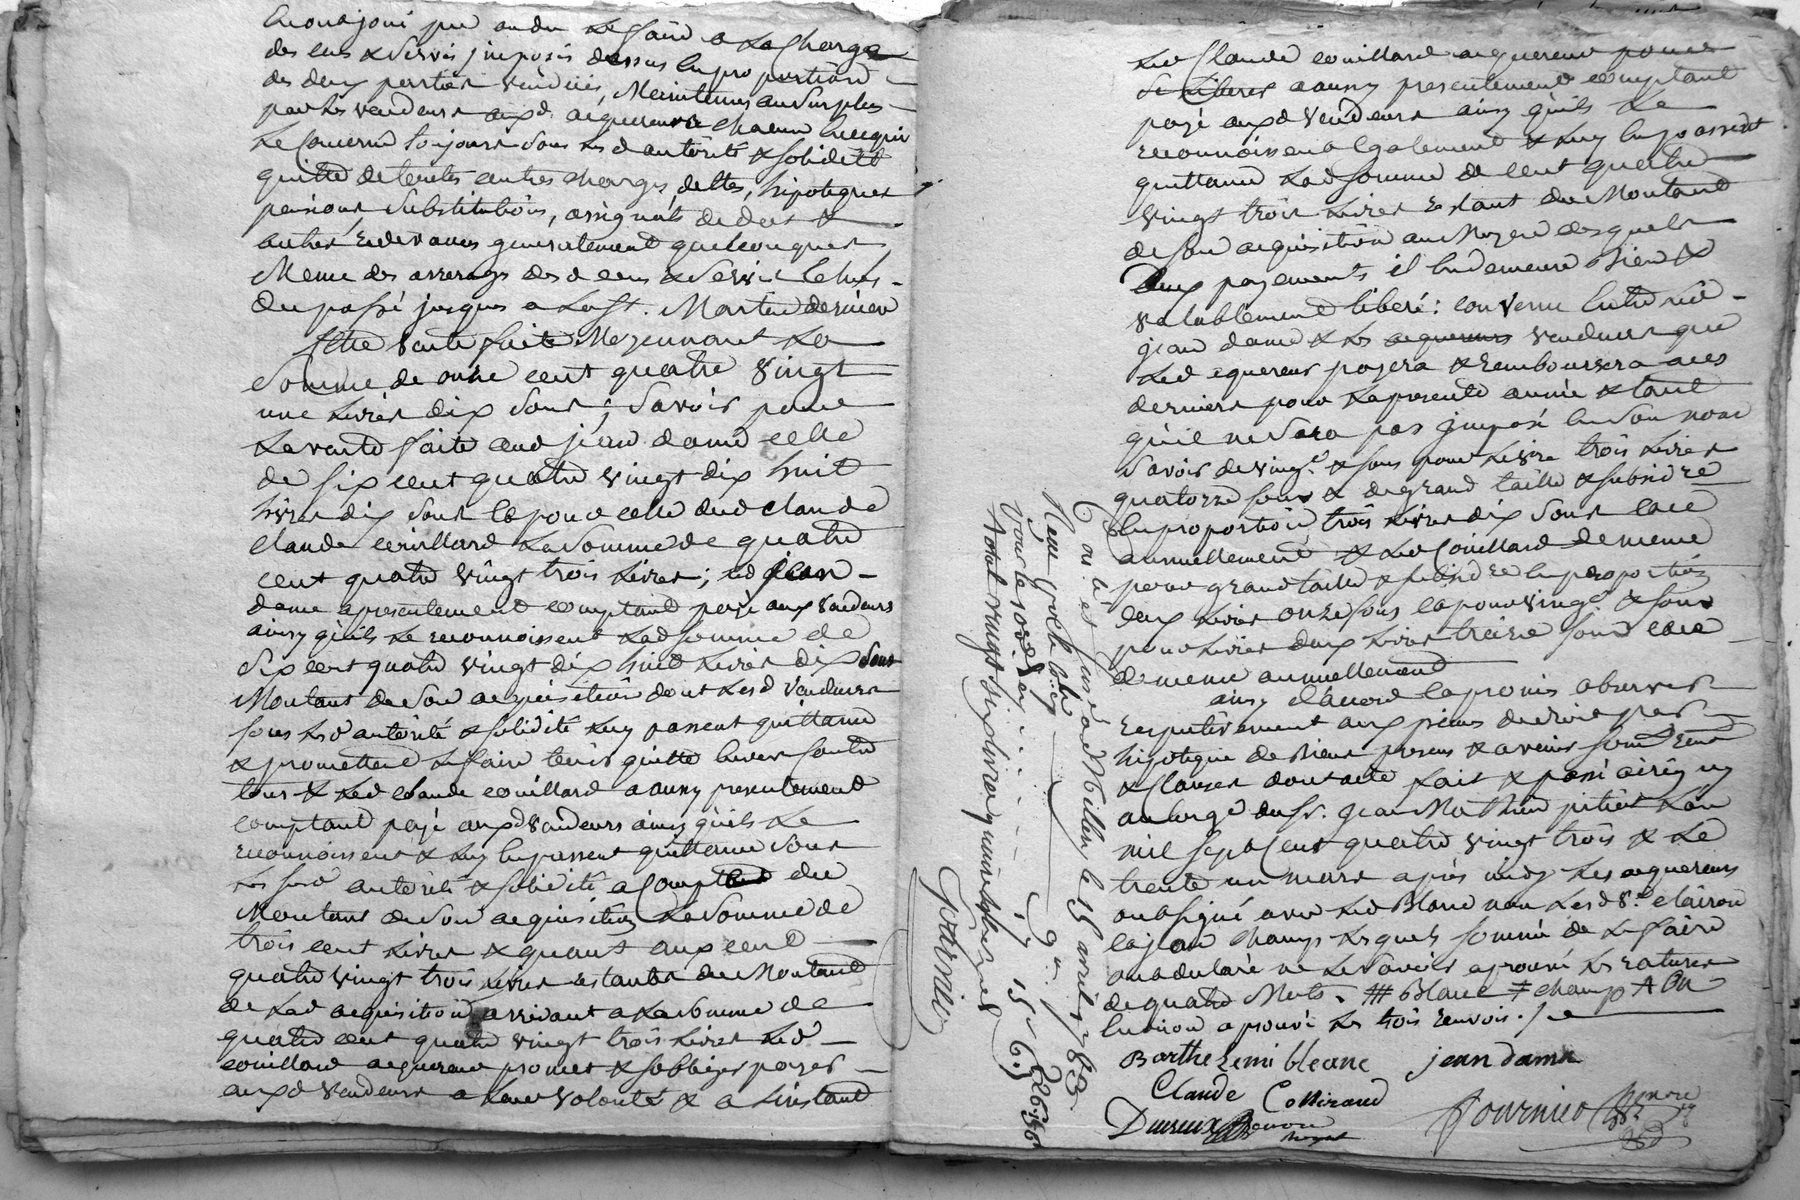 en ont joui pu ou du le faire a la Charge
des cens & servis imposés dessus en proportion
des deux parties vendües, Maintenus au surplus
par les vendeurs auxd. acquereurs chacun en ce qui
le Concerne toujours sous lesd autorité & solidité
quitte de toutes autres charges, dettes, hipoteques
pensions, substitutions, assignats de dots &
autres redevances generalement quelconques
Meme des arrerages desd cens & servis echus
du passé jusques a la St. Martin dernier
Cette vente faite Moyennant la
Somme de onze cent quatre vingt
une livres dix sous, savoir pour
la vente faite aud jean dame celle
de six cent quatre vingt dix huit
livres dix sous et pour celle dud claude
Claude couillard la somme de quatre
cent quatre vingt trois livres; led jean
dame a presentement comptant payé aux vendeurs
ainsy qu'ils le reconnoissent lad somme de
six cent quatre vingt dix huit livres dix sous
Montant de son acquisition dont lesd vendeurs
sous lesd autorité & solidité luy passent quittance
& promettent le faire tenir quitte envers & contre
tous & led claude couillard a aussy presentement
comptant payé auxd vendeurs ainsy qu'ils le
reconnoissent & luy en passent quittance sous
les susd autorité & solidité a Compte du
Montant de son acquisition la somme de
trois cent livres & quant aux cent
quatre vingt trois livres restantes du Montant
de lad acquisition arrivant a la somme de
quatre cent quatre vingt trois livres led
couillard acquereur promet & s'obliger payer
auxd vendeurs a leur volonté & a l'instant
led Claude couillard acquereur pour
se liberer a aussy presentement comptant
payé auxd vendeurs ainsy qu'ils le
reconnoissent egalement & luy en passent
quittance lad somme de cent quatre
vingt trois livres restant du Montant
de son acquisition au Moyen desquels
deux payements il en demeure bien &
valablement liberé: convenu entre led
jean dame & les acquereurs vendeurs que
led aquereur payera & remboursera a ces
derniers pour la presente année & tant
qu'il ne sera pas imposé en son nom
savoir de vingt.e & sous pour livre trois livres
quatorze sous & de grand taille & subsid re
en proportion trois livres dix sous et ce
annuellement & led Couillard de meme
pour grand taille & subsid re en proportion
deux livres onze sous et pour vingt.e & sous
pour livres deux livres treize sous et ce
de meme annuellement
ainsy d'accord et promis observer
respectivement aux peines de droit par
hipoteque de biens presens & avenir soum.s renon
& Clauses dont acte fait & passé a
au logé du Sr. jean Mathieu pitiot l'an
mil sept cent quatre vingt trois & le
trente un mars apres midy les acquereurs
ont signé avec led Blanc non lesd
Champ lesquels sommé de le faire
ont declaré ne le savoir aprouvé les ratures
de quatre Mots. # Blanc ‡ champ
environ aprouvé les trois renvois ./.
Barthelemi bleanc jean dama
Claude Collirand
Fournier
Con lé et Insé a Millery le 15 avril 1783
Reçu
vingt six livres quinze sols
Garnier